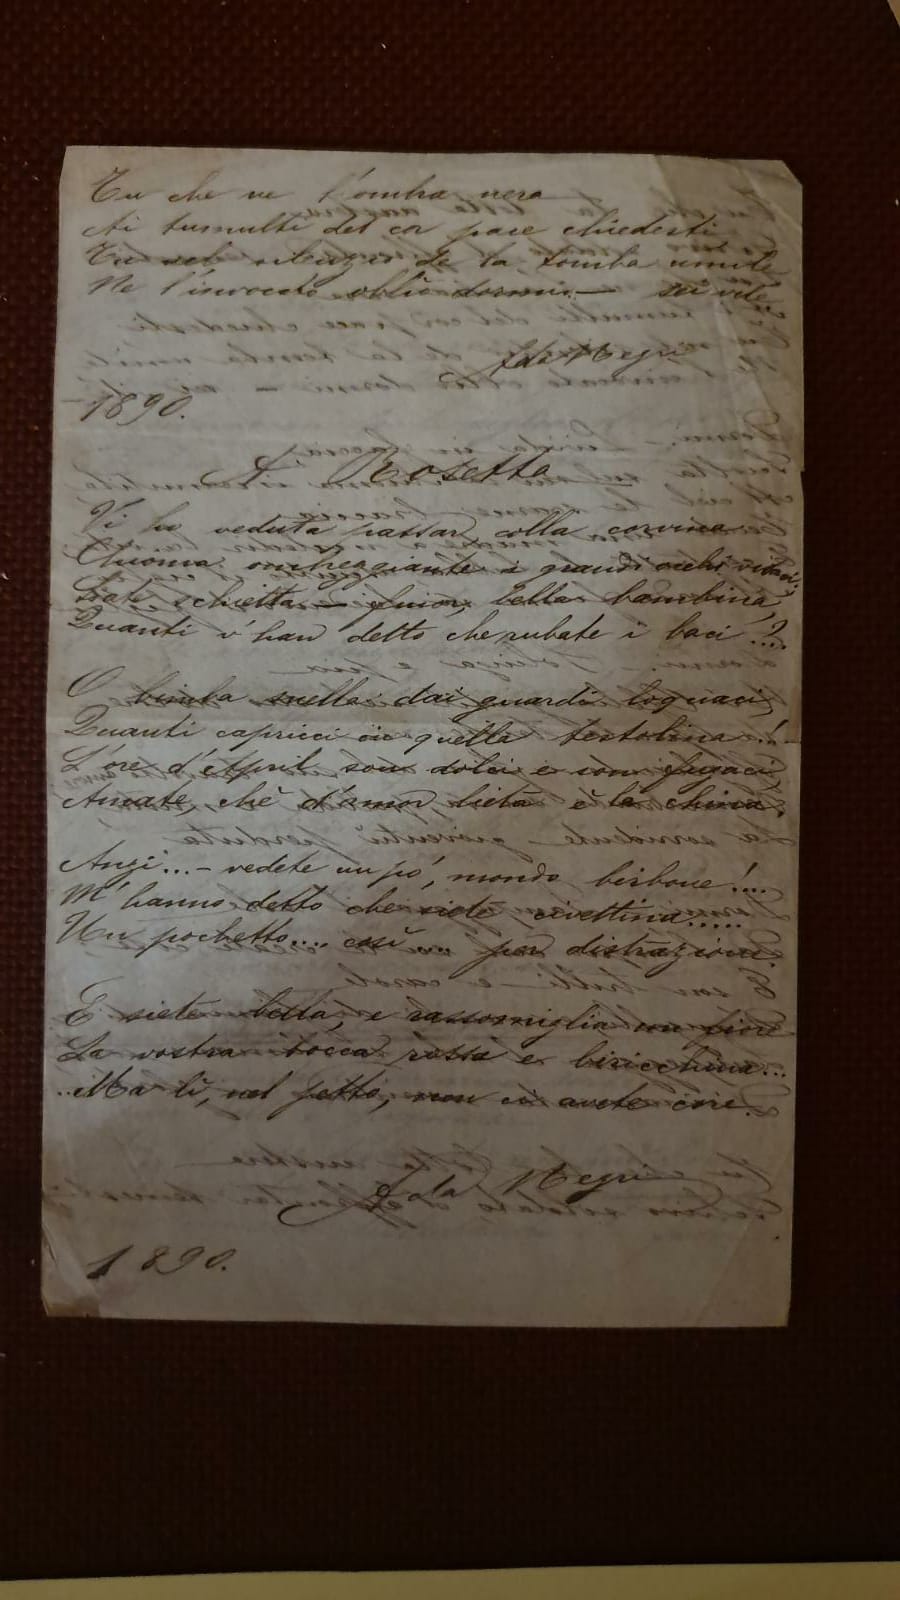 Tu che ne l'ombra nera
Ai tumulti del cor pace chiedesti
Tu nel silenzio de la tomba umile
Ne l'invocato oblìo dormi. — sei vile
Ada Negri
1890.
A Rosetta
Vi ho veduta passar colla corvina
Chioma ombreggiante i grandi occhi vivaci,
Siate schietta — fuior, bella bambina,
Quanti v'han detto che rubate i baci?...
O bimba snella dai guardi loquaci,
Quanti capricci in quella testolina...!
L'ore d'April son dolci e son fugaci,
Amate, chè d'amor lieta è la china.
Anzi...- vedete un pó, mondo birbone!...
M'hanno detto che siete civettina.....
Un pochetto.... così per distrazione.
E siete bella, e rassomiglia un fiore
La vostra bocca rossa e biricchina...
..Ma lì, nel petto, non ci avete core.
Ada Negri
1890.